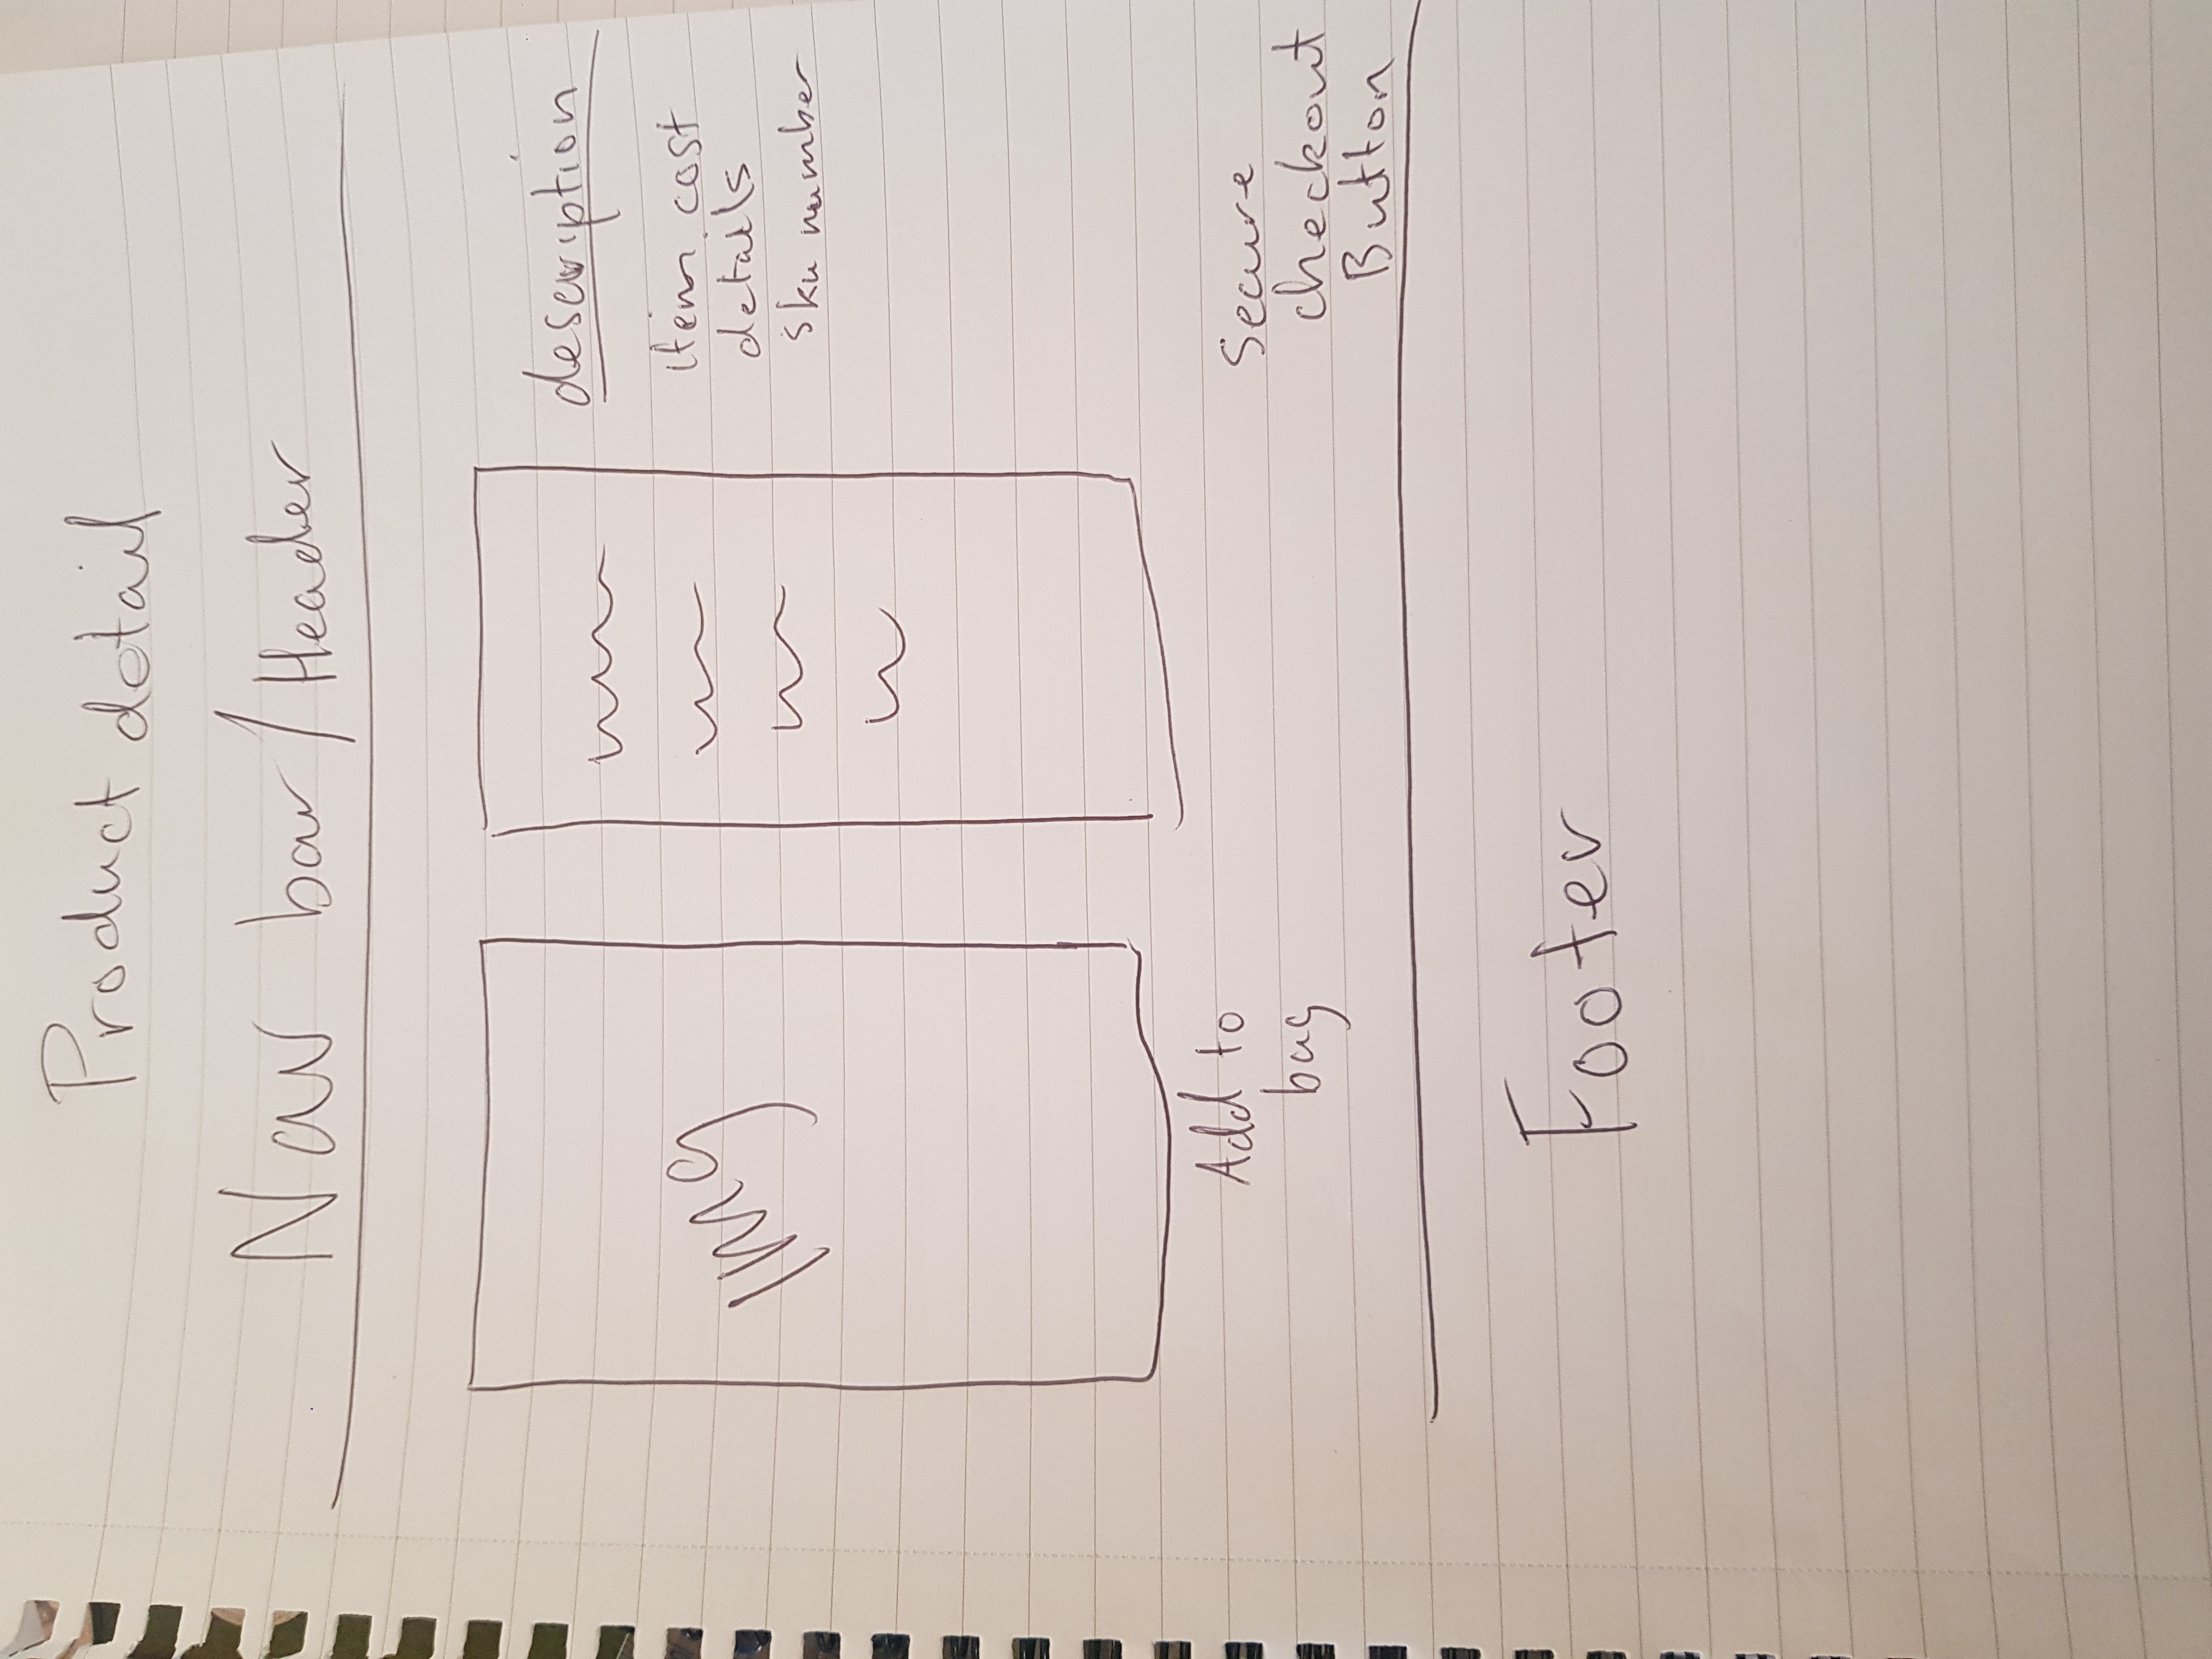 Product detail
Nav bar / Header
Img
description
item cost
details
sku number
Add to
bag
Secure
checkout
Button
Footer